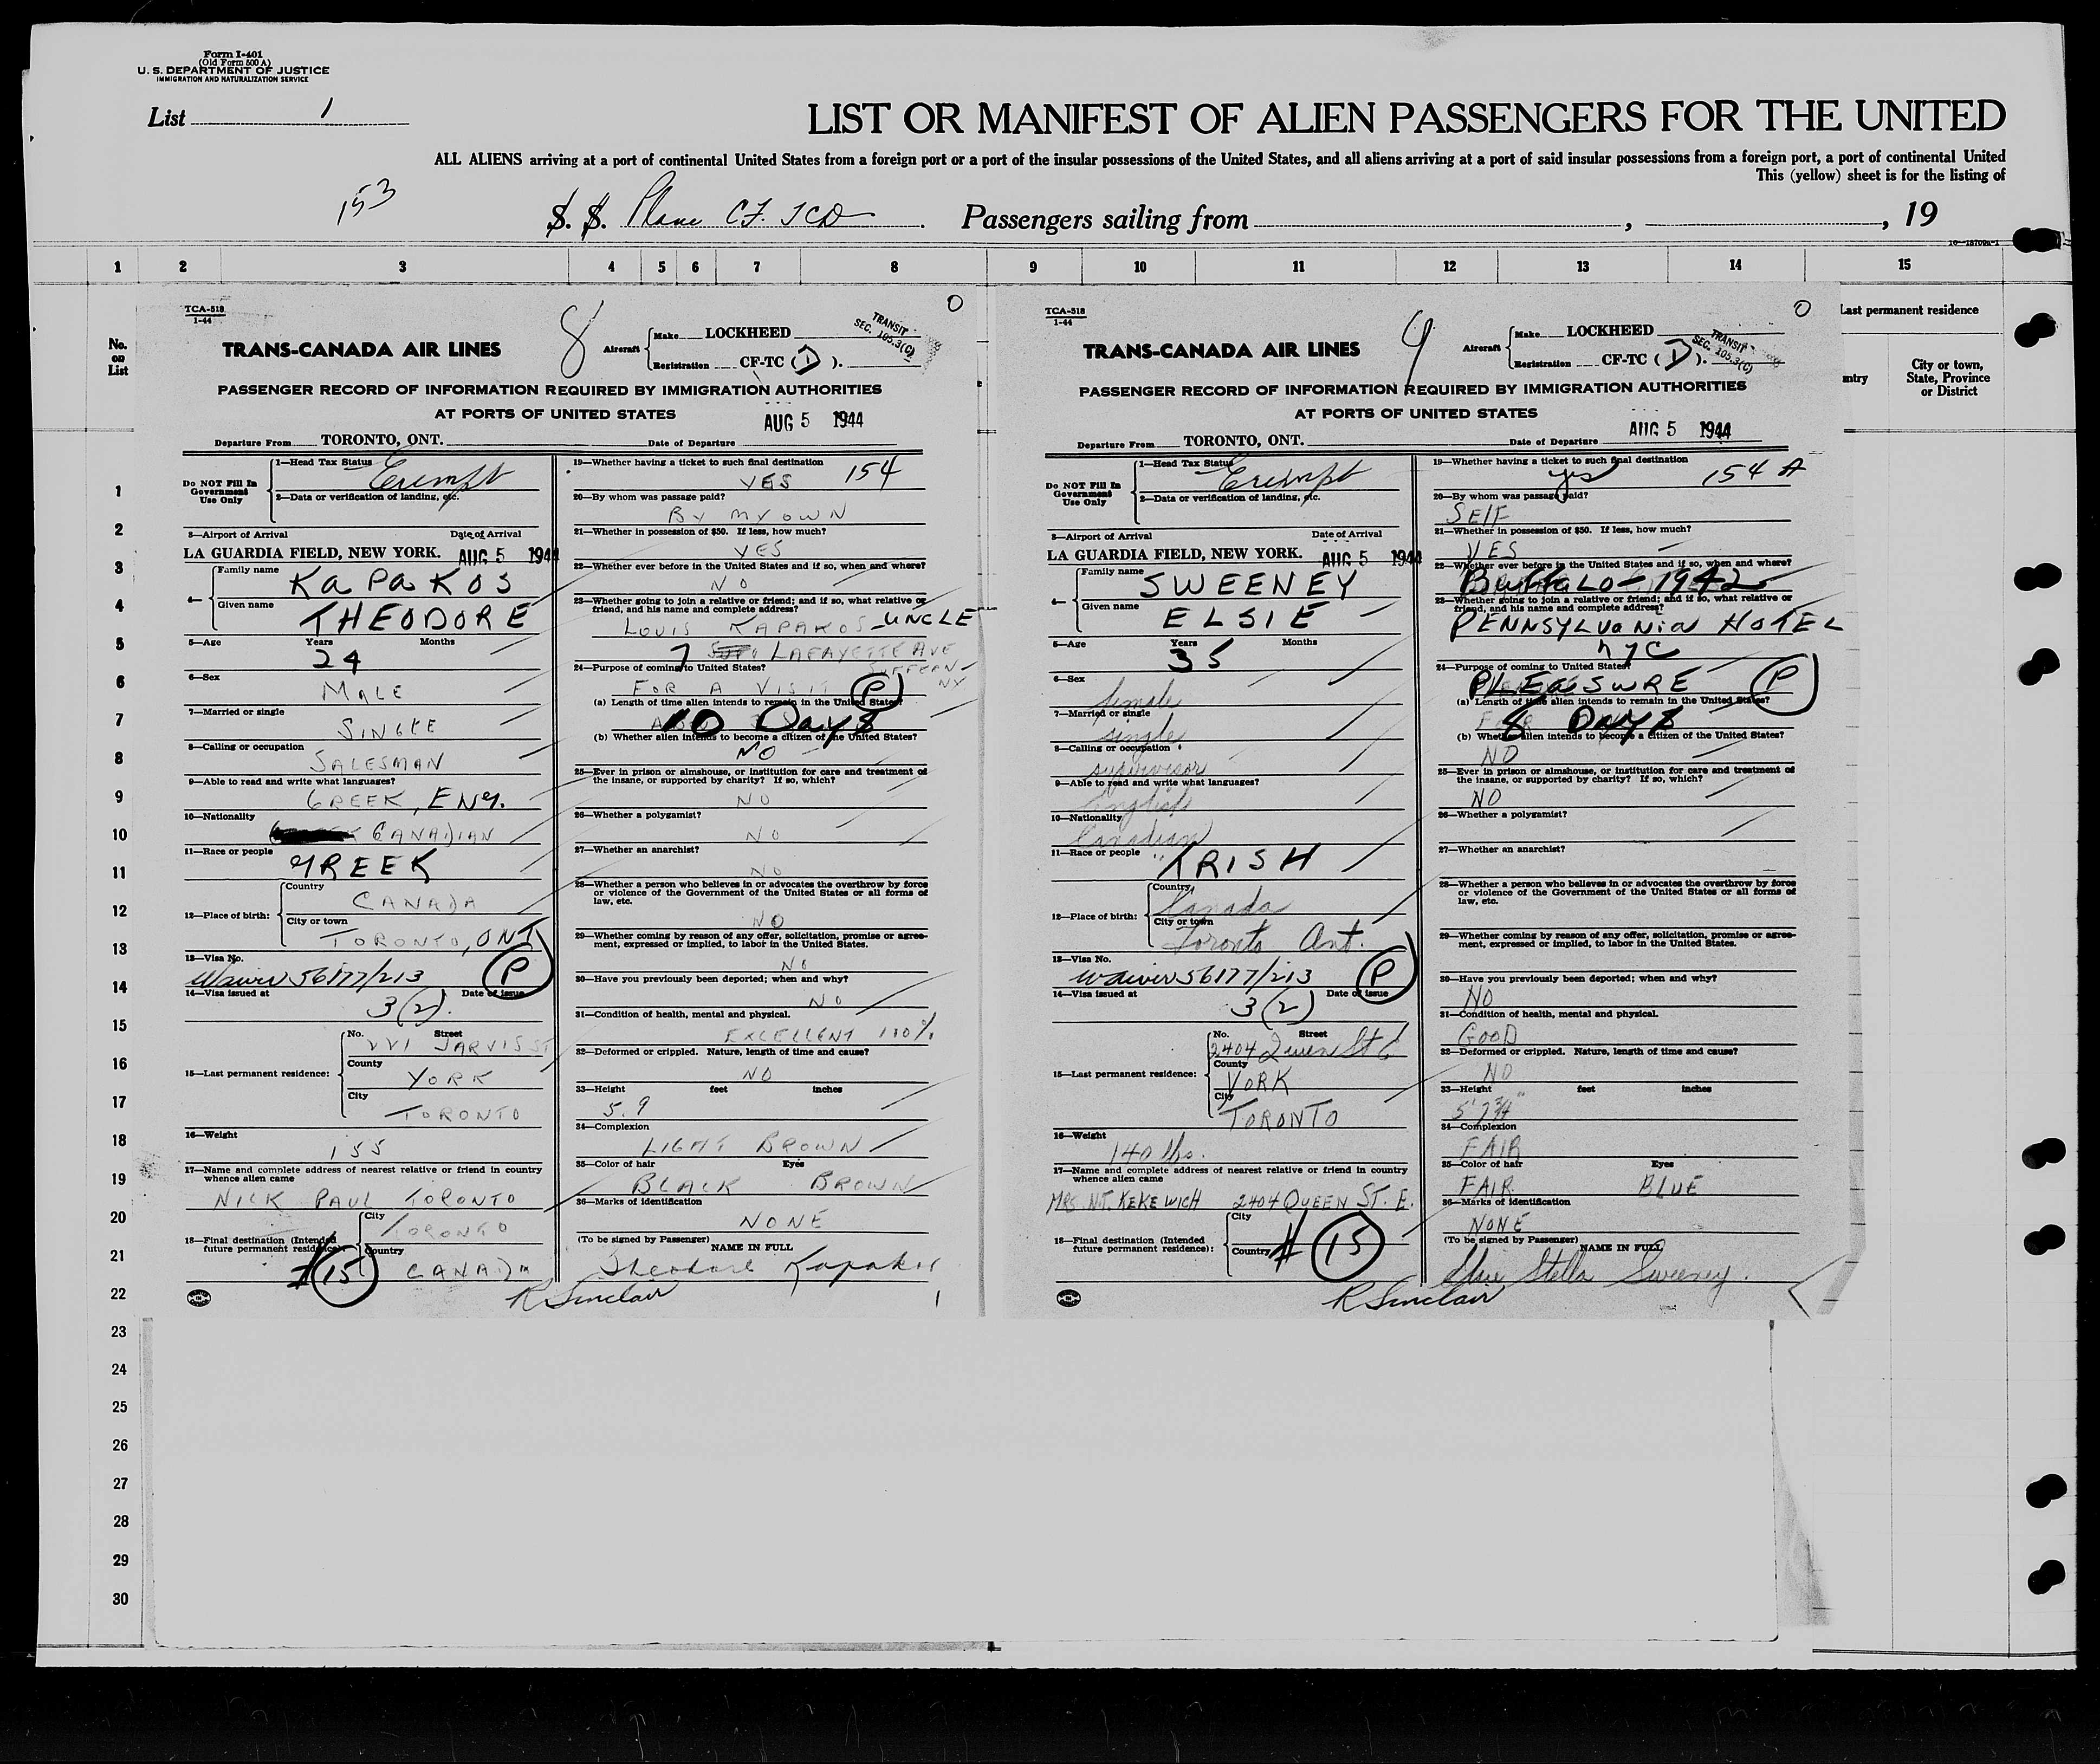 Form I-401
(Old Form 500 A)
U. S. DEPARTMENT OF JUSTICE
IMMIGRATION AND NATURALIZATION SERVICE
List 1
LIST OR MANIFEST OF ALIEN PASSENGERS FOR THE UNITED
ALL ALIENS arriving at a port of continental United States from a foreign port or a port of the insular possessions of the United States, and all aliens arriving at a port of said insular possessions from a foreign port, a port of continental United
This (yellow) sheet is for the listing of
153
S. S. Plane CF. TCD Passengers sailing from , , 19
1 2 3 4 5 6 7 8 9 10 11 12 13 14 15
No. on List
Last permanent residence
ntry
City or town, State, Province or District
1
2
3
4
5
6
7
8
9
10
11
12
13
14
15
16
17
18
19
20
21
22
23
24
25
26
27
28
29
30
TCA-518
1-44
8
O
TRANS-CANADA AIR LINES
Aircraft
Make LOCKHEED
Registration CF-TC ( D ).
TRANSIT
SEC. 105.3(C)
PASSENGER RECORD OF INFORMATION REQUIRED BY IMMIGRATION AUTHORITIES
AT PORTS OF UNITED STATES
AUG 5 1944
Departure From TORONTO, ONT. Date of Departure
Do NOT Fill In Government Use Only
1—Head Tax Status Exempt
2—Data or verification of landing, etc.
3—Airport of Arrival Date of Arrival
LA GUARDIA FIELD, NEW YORK. AUG 5 1944
4— Family name KAPAKOS
Given name THEODORE
5—Age Years Months
24
6—Sex
MALE
7—Married or single
SINGLE
8—Calling or occupation
SALESMAN
9—Able to read and write what languages?
GREEK, ENG.
10—Nationality
CANADIAN
11—Race or people
GREEK
12—Place of birth:
Country
CANADA
City or town
TORONTO, ONT
13—Visa No.
Waiver 56177/213 P
14—Visa issued at Date of issue
3(2).
15—Last permanent residence:
No. Street
221 JARVIS ST
County
YORK
City
TORONTO
16—Weight
155
17—Name and complete address of nearest relative or friend in country whence alien came
NICK PAUL TORONTO
18—Final destination (Intended future permanent residence):
City
TORONTO
Country
CANADA
# 15
R Sinclair
19—Whether having a ticket to such final destination
YES 154
20—By whom was passage paid?
BY MY OWN
21—Whether in possession of $50. If less, how much?
YES
22—Whether ever before in the United States and if so, when and where?
NO
23—Whether going to join a relative or friend; and if so, what relative or friend, and his name and complete address?
LOUIS KAPAKOS - UNCLE
7 LAFAYETTE AVE
SUFFERN - NY
24—Purpose of coming to United States?
FOR A VISIT P
(a) Length of time alien intends to remain in the United States?
10 Days
(b) Whether alien intends to become a citizen of the United States?
NO
25—Ever in prison or almshouse, or institution for care and treatment of the insane, or supported by charity? If so, which?
NO
26—Whether a polygamist?
NO
27—Whether an anarchist?
NO
28—Whether a person who believes in or advocates the overthrow by force or violence of the Government of the United States or all forms of law, etc.
NO
29—Whether coming by reason of any offer, solicitation, promise or agreement, expressed or implied, to labor in the United States.
NO
30—Have you previously been deported; when and why?
NO
31—Condition of health, mental and physical.
EXCELLENT 100%
32—Deformed or crippled. Nature, length of time and cause?
NO
33—Height feet inches
5.9
34—Complexion
LIGHT BROWN
35—Color of hair Eyes
BLACK BROWN
36—Marks of identification
NONE
(To be signed by Passenger)
NAME IN FULL
Theodore Kapakos
1
TCA-518
1-44
9
O
TRANS-CANADA AIR LINES
Aircraft
Make LOCKHEED
Registration CF-TC ( D ).
TRANSIT
SEC. 105.3(C)
PASSENGER RECORD OF INFORMATION REQUIRED BY IMMIGRATION AUTHORITIES
AT PORTS OF UNITED STATES
AUG 5 1944
Departure From TORONTO, ONT. Date of Departure
Do NOT Fill In Government Use Only
1—Head Tax Status Exempt
2—Data or verification of landing, etc.
3—Airport of Arrival Date of Arrival
LA GUARDIA FIELD, NEW YORK. AUG 5 1944
4— Family name SWEENEY
Given name ELSIE
5—Age Years Months
35
6—Sex
female
7—Married or single
single
8—Calling or occupation
supervisor
9—Able to read and write what languages?
English
10—Nationality
Canadian
11—Race or people
IRISH
12—Place of birth:
Country
Canada
City or town
Toronto Ont.
13—Visa No.
Waiver 56177/213 P
14—Visa issued at Date of issue
3(2)
15—Last permanent residence:
No. Street
2404 Queen St E
County
YORK
City
TORONTO
16—Weight
140 lbs.
17—Name and complete address of nearest relative or friend in country whence alien came
MRS. KEKEWICH 2404 QUEEN ST. E.
18—Final destination (Intended future permanent residence):
City
Country
# 15
R Sinclair
19—Whether having a ticket to such final destination
yes 154 A
20—By whom was passage paid?
SELF
21—Whether in possession of $50. If less, how much?
YES
22—Whether ever before in the United States and if so, when and where?
Buffalo - 1942
23—Whether going to join a relative or friend; and if so, what relative or friend, and his name and complete address?
PENNSYLVANIA HOTEL
NYC
24—Purpose of coming to United States?
PLEASURE P
(a) Length of time alien intends to remain in the United States?
8 Days
(b) Whether alien intends to become a citizen of the United States?
NO
25—Ever in prison or almshouse, or institution for care and treatment of the insane, or supported by charity? If so, which?
NO
26—Whether a polygamist?
27—Whether an anarchist?
28—Whether a person who believes in or advocates the overthrow by force or violence of the Government of the United States or all forms of law, etc.
29—Whether coming by reason of any offer, solicitation, promise or agreement, expressed or implied, to labor in the United States.
30—Have you previously been deported; when and why?
NO
31—Condition of health, mental and physical.
GOOD
32—Deformed or crippled. Nature, length of time and cause?
NO
33—Height feet inches
5' 7 3/4"
34—Complexion
FAIR
35—Color of hair Eyes
FAIR BLUE
36—Marks of identification
NONE
(To be signed by Passenger)
NAME IN FULL
Elsie Stella Sweeney.